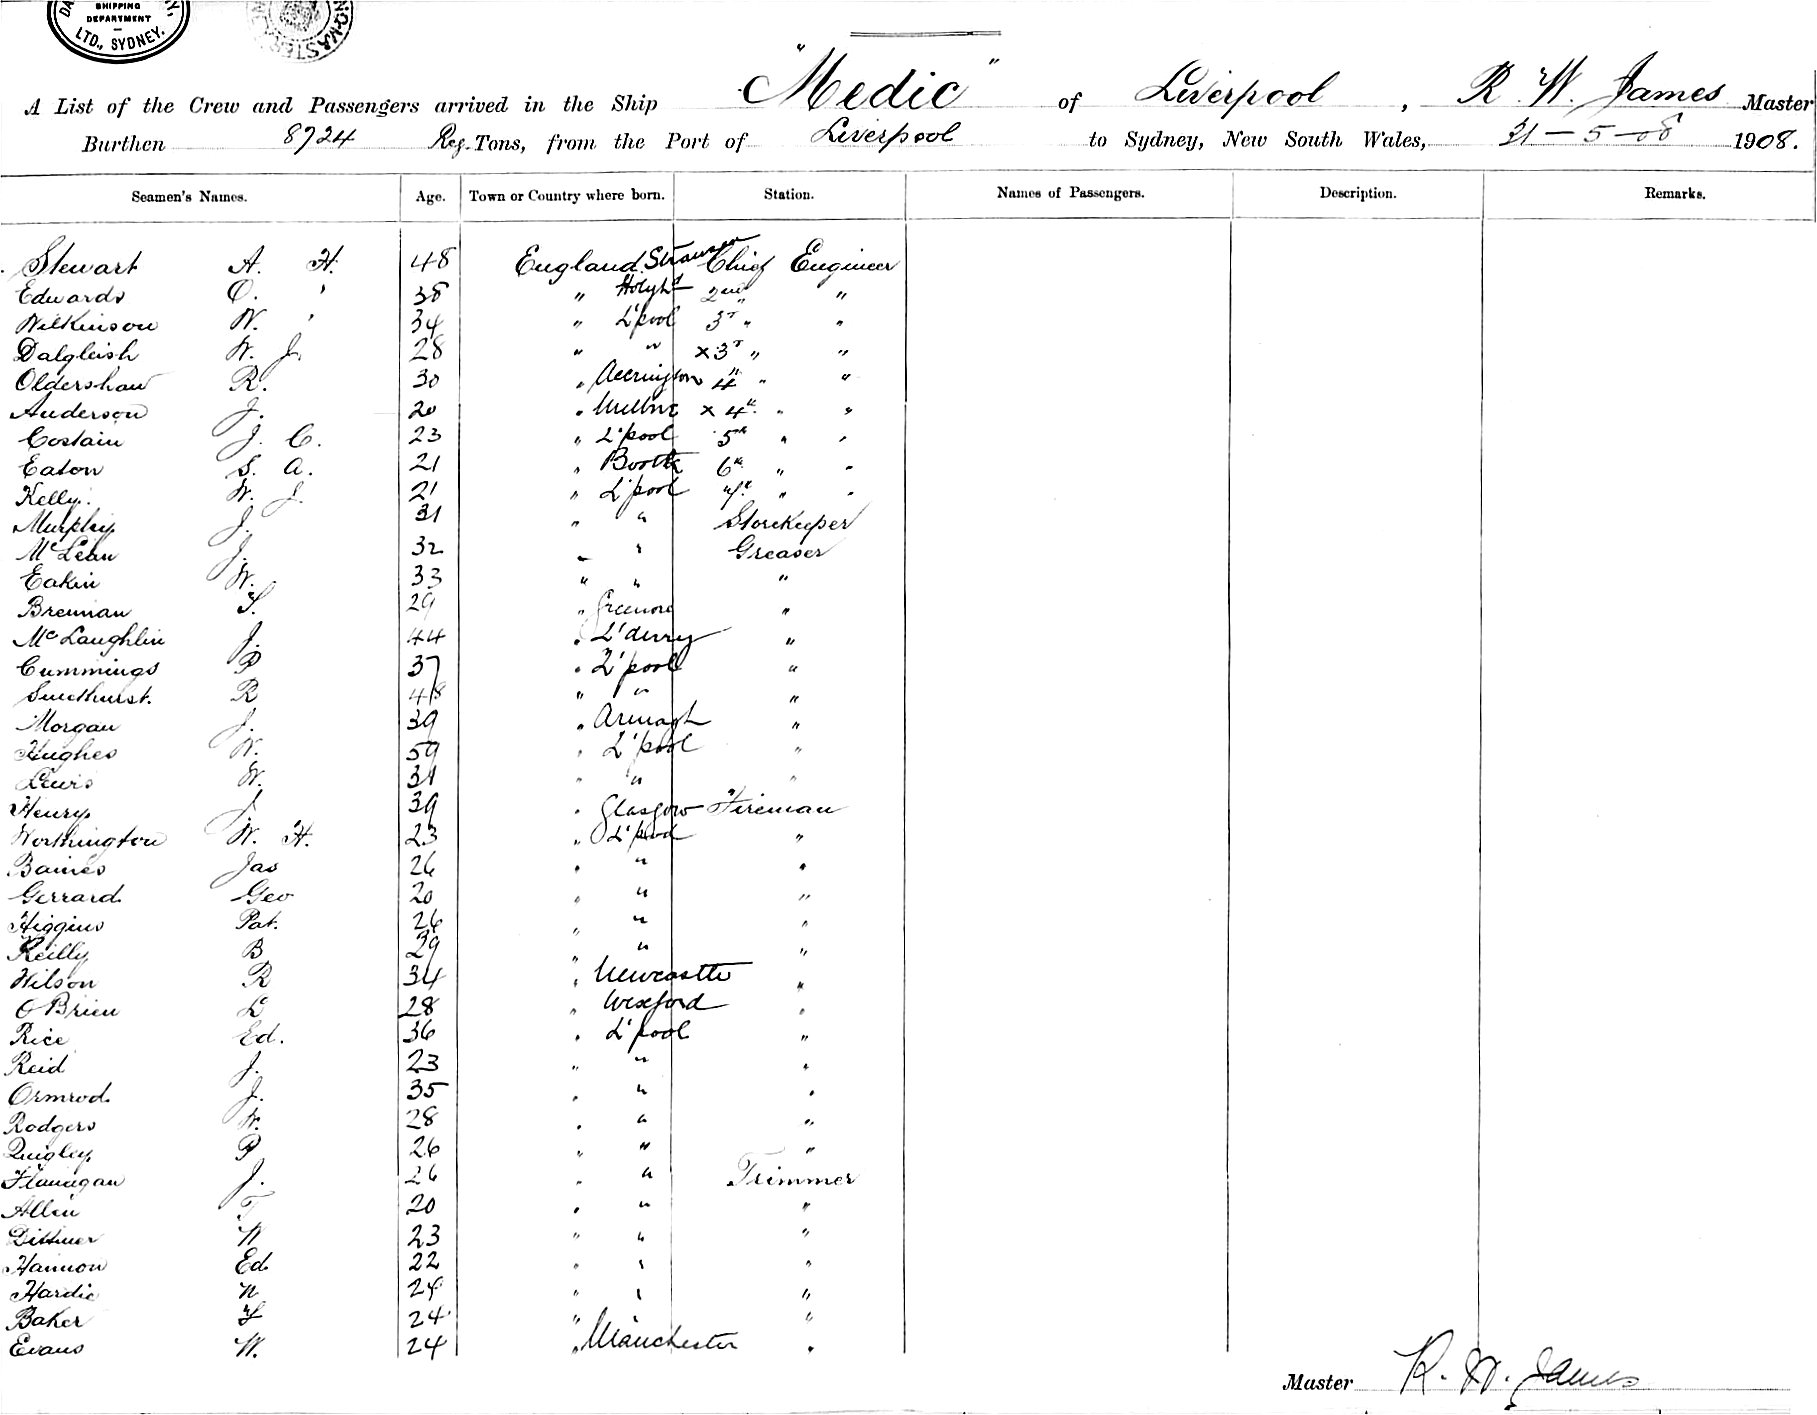 SHIPPING
DEPARTMENT
LTD., SYDNEY.
A List of the Crew and Passengers arrived in the Ship "Medic" of Liverpool, R. W. James Master
Burthen 8724 Reg. Tons, from the Port of Liverpool to Sydney, New South Wales, 31-5-08 1908.
Seamen's Names. Age. Town or Country where born. Station. Names of Passengers. Description. Remarks.
Stewart A. H. 48 England Chief Engineer
Edwards O. 38 " Holyhd 2nd " "
Wilkinson W. 34 " L'pool 3r " "
Dalgleish W. J. 28 " " x3r " "
Oldershaw R. 30 " Accrington 4" " "
Anderson J. 20 " x 4" " "
Costain J. C. 23 " L'pool 5th " "
Eaton S. A. 21 " Bootle 6th " "
Kelly W. J. 21 " L'pool 7th " "
Murphy J. 31 " " Storekeeper
McLean J. 32 " " Greaser
Eakin W. 33 " " "
Brennan T. 29 " Greenore "
McLaughlin J. 44 " L'derry "
Cummings P 37 " L'pool "
Smethurst. R 48 " " "
Morgan J. 39 " Armagh "
Hughes W. 59 " L'pool "
Lewis W. 31 " " "
Henry J. 39 " Glasgow Fireman
Worthington W. H. 23 " L'pool "
Baines Jas 26 " " "
Gerrard Geo 20 " " "
Higgins Pat. 26 " " "
Reilly B 29 " " "
Wilson R 34 " Newcastle "
O'Brien L 28 " Wexford "
Rice Ed. 36 " L'pool "
Reid J. 23 " " "
Ormrod. J. 35 " " "
Rodgers W. 28 " " "
Quigley P 26 " " "
Flanagan J. 26 " " Trimmer
Allen T 20 " " "
Dittmer W 23 " " "
Hannon Ed 22 " " "
Hardie N 24 " " "
Baker F 24 " " "
Evans W. 24 " Manchester "
Master R. W. James